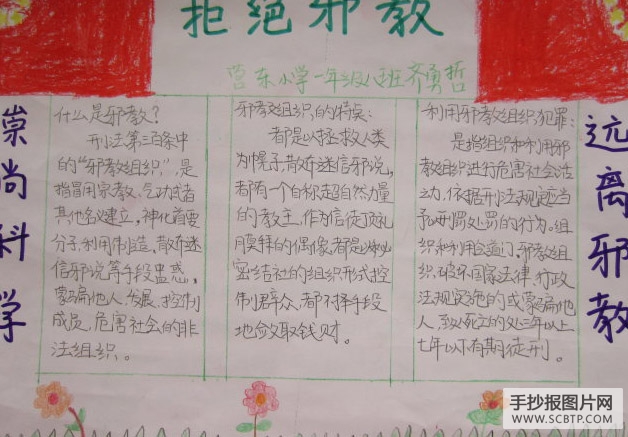 拒绝邪教
营东小学一年级八班齐勇哲
崇尚科学
什么是邪教?
刑法第三百条中
的“邪教组织”,是
指冒用宗教、气功或者
其他名义建立,神化首要
分子,利用制造、散布迷
信邪说等手段蛊惑、
蒙骗他人,发展、控制
成员,危害社会的非
法组织。
邪教组织的特点:
都是以拯救人类
为幌子,散布迷信邪说,
都有一个自称超自然力量
的教主,作为信徒顶礼
膜拜的偶像,都是以秘
密结社的组织形式控
制群众,都不择手段
地敛取钱财。
利用邪教组织犯罪:
是指组织和利用邪
教组织进行危害社会活
动,依据刑法规定应当
予以刑罚处罚的行为。组
织和利用会道门、邪教组
织,破坏国家法律、行政
法规实施的或蒙骗他
人,致人死亡的处三年以上
七年以下有期徒刑。
远离邪教
手抄报图片网
WWW.SCBTP.COM